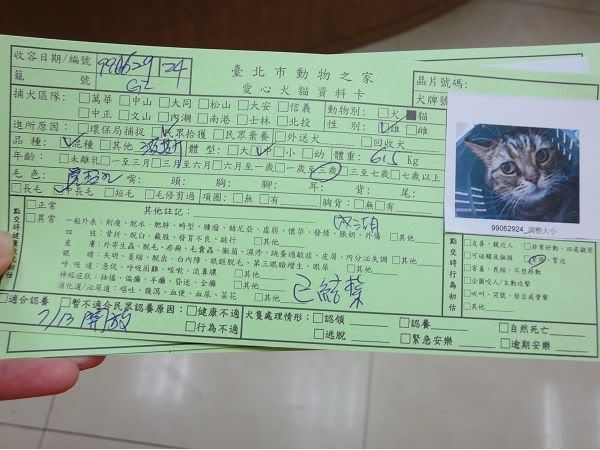 收容日期/編號 990629 24
籠 號 G2
臺北市動物之家
愛心犬貓資料卡
晶片號碼:
犬牌號
捕犬區隊: □萬華 □中山 □大同 □松山 □大安 □信義
□中正 □文山 □內湖 □南港 □士林 □北投
動物別: □犬 ■貓
性 別: 雄 □雌
進所原因: □環保局捕捉 民眾拾獲 □民眾棄養 □外送犬 □回收犬
品 種: 混種 □其他 體 型: □大 中 □小 □幼 體重: 6.5 Kg
年齡: □未離乳 □一至三月 □三至六月 □六月至一歲 □一歲至三歲 □三至七歲 □七歲以上
毛 色: 嘴: 頭: 胸: 腳: 耳: 背: 尾:
長毛 □短毛 □毛修剪過 項圈: □無 □有 胸背: □無 □有
點交時健康
□正常
□異常
其他註記:
一般外表: 削瘦、脫水、肥胖、畸型、腫瘤、絲瓜亞、虛弱、懷孕、發情、脹奶、外傷 □其他
四 肢: 骨折、脫臼、截肢、發育不良、跛行 □其他
皮 膚: 外寄生蟲、脫毛、疥癬、毛囊蟲、黴菌、濕疹、跳蚤過敏症、皮屑、內分泌失調 □其他
眼 睛: 失明、萎縮、脫出、白內障、眼瞼脫毛、第三眼瞼增生、眼屎 □其他
呼 吸 道: 急促、呼吸困難、咳嗽、流鼻膿 □其他
神經症狀: 抽搐、偏癱、半癱、昏迷、全癱 □其他
消化道/泌尿道: 嘔吐、腹瀉、血便、血尿、菜花 □其他
已結紮
99062924_調整大小
點交時行為初估
□友善、親近人 □非常好動、四處觀察
□可觸及拖撫 緊張
□害羞、畏縮、不想移動
□企圖咬人/主動攻擊
□吠叫、哭號、發出威脅聲
□其他
適合認養 □暫不適合民眾認養原因: □健康不適
□行為不適
7/13 開放
犬隻處理情形: □認領 □認養 □自然死亡
□逃脫 □緊急安樂 □逾期安樂